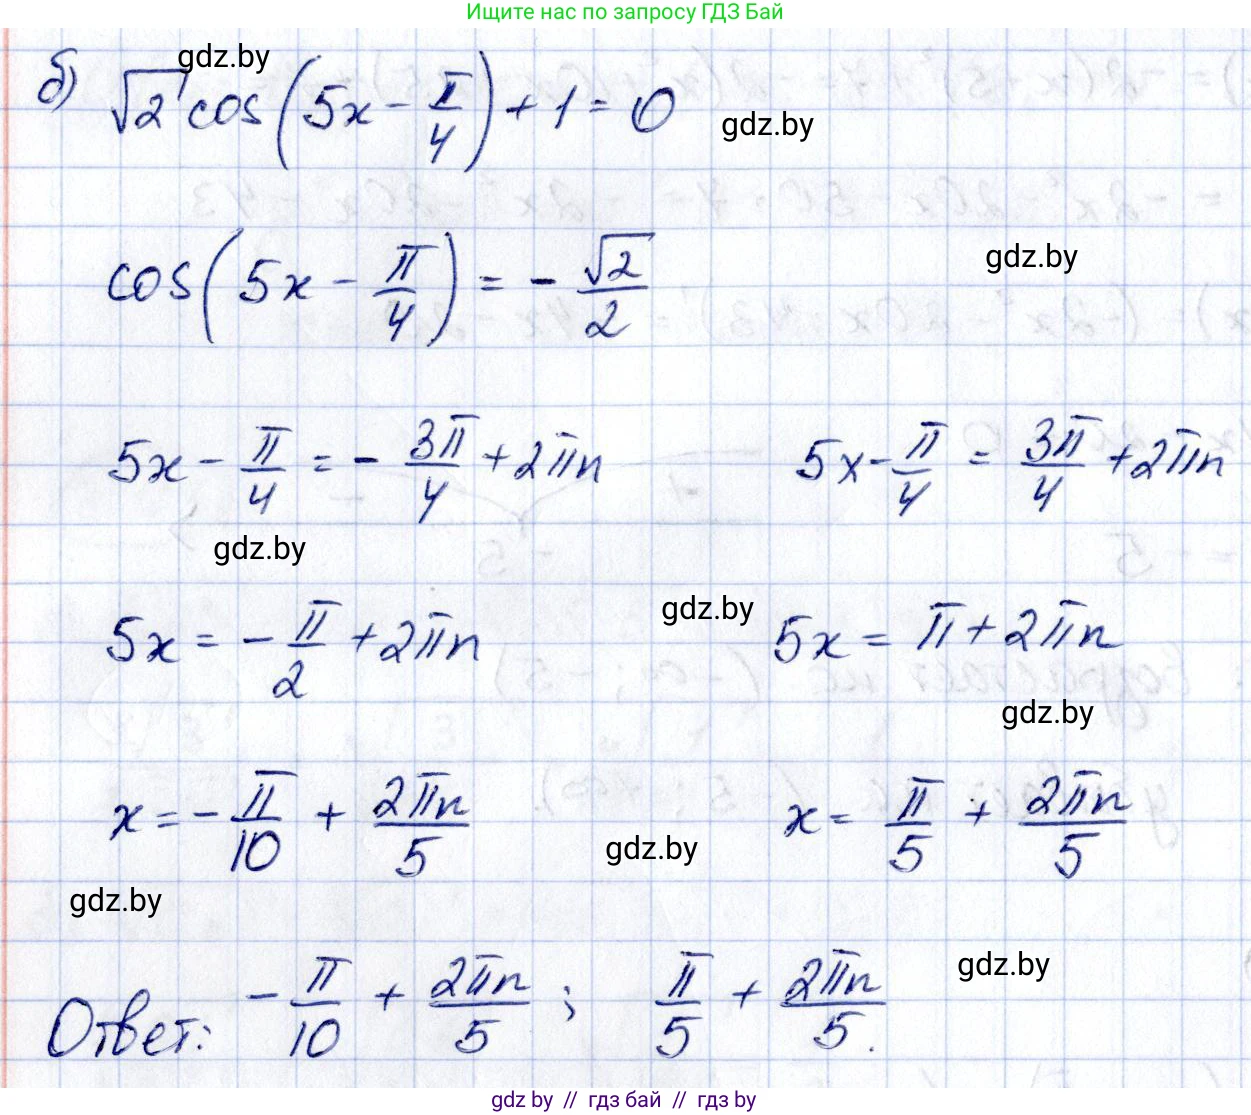 Ищите нас по запросу ГДЗ Бай
б) √2 cos(5x - π/4) + 1 = 0
gdz.by
gdz.by
cos(5x - π/4) = - √2/2
gdz.by
5x - π/4 = - 3π/4 + 2πn 5x - π/4 = 3π/4 + 2πn
gdz.by
gdz.by
5x = - π/2 + 2πn 5x = π + 2πn
gdz.by
x = - π/10 + 2πn/5 x = π/5 + 2πn/5
gdz.by
gdz.by
gdz.by
Ответ: - π/10 + 2πn/5 ; π/5 + 2πn/5.
gdz by // гдз бай // гдз by